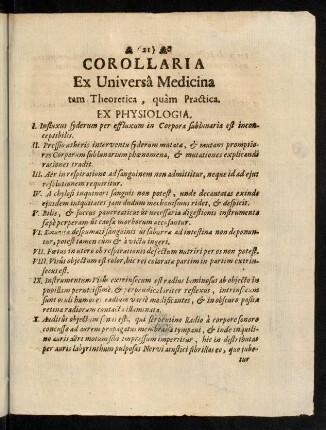 (21)
COROLLARIA
Ex Universâ Medicina
tam Theoretica, quàm Practica.
EX PHYSIOLOGIA.
I. Influxus syderum per effluxum in Corpora sublunaria est incon-
ceptibilis.
II. Pressio ætheris interventu syderum mutata, & mutans promptio-
res Corporum sublunarium phænomena, & mutationes explicandi
rationes tradit.
III. Aër in respiratione ad sanguinem non admittitur, neque id ad ejus
volutionem requiritur.
IV. A chyli sanguis non potest, unde decantatas exinde
ejusdem inquinates jam dudum mechanismus ridet, & despicit.
V. Bilis, & succus pancreaticus ut necessaria digestionis instrumenta
sæpè perperam ut causa morborum accusantur.
VI. despumati sanguinis ut saburra ad intestina non deponun-
tur, potest tamen eum & à victu ingeri.
VII. Fœtus in utero ob respirationis defectum nutriri per os non potest.
VIII. Visûs objectum est color, hic rei coloratæ partim in partim extrin-
secus est.
IX. Instrumentum Visûs extrinsecum est radius luminosus ab objecto in
pupillam & perpendiculariter reflexus, intrinsecum
sunt oculi humores radium variè modificantes, & in obscuro posita
retina radiorum contactu illuminata.
X. Auditûs objectum sonus est, qui serpentino Radio à corpore sonoro
concusso ad aurem propagatus membrana tympani, & inde inquili-
no auris aëre motum sibi impressum impertitur, hic in distributas
per auris labyrinthum pulposas Nervi acustici fibrillas eo, quo jube-
tur